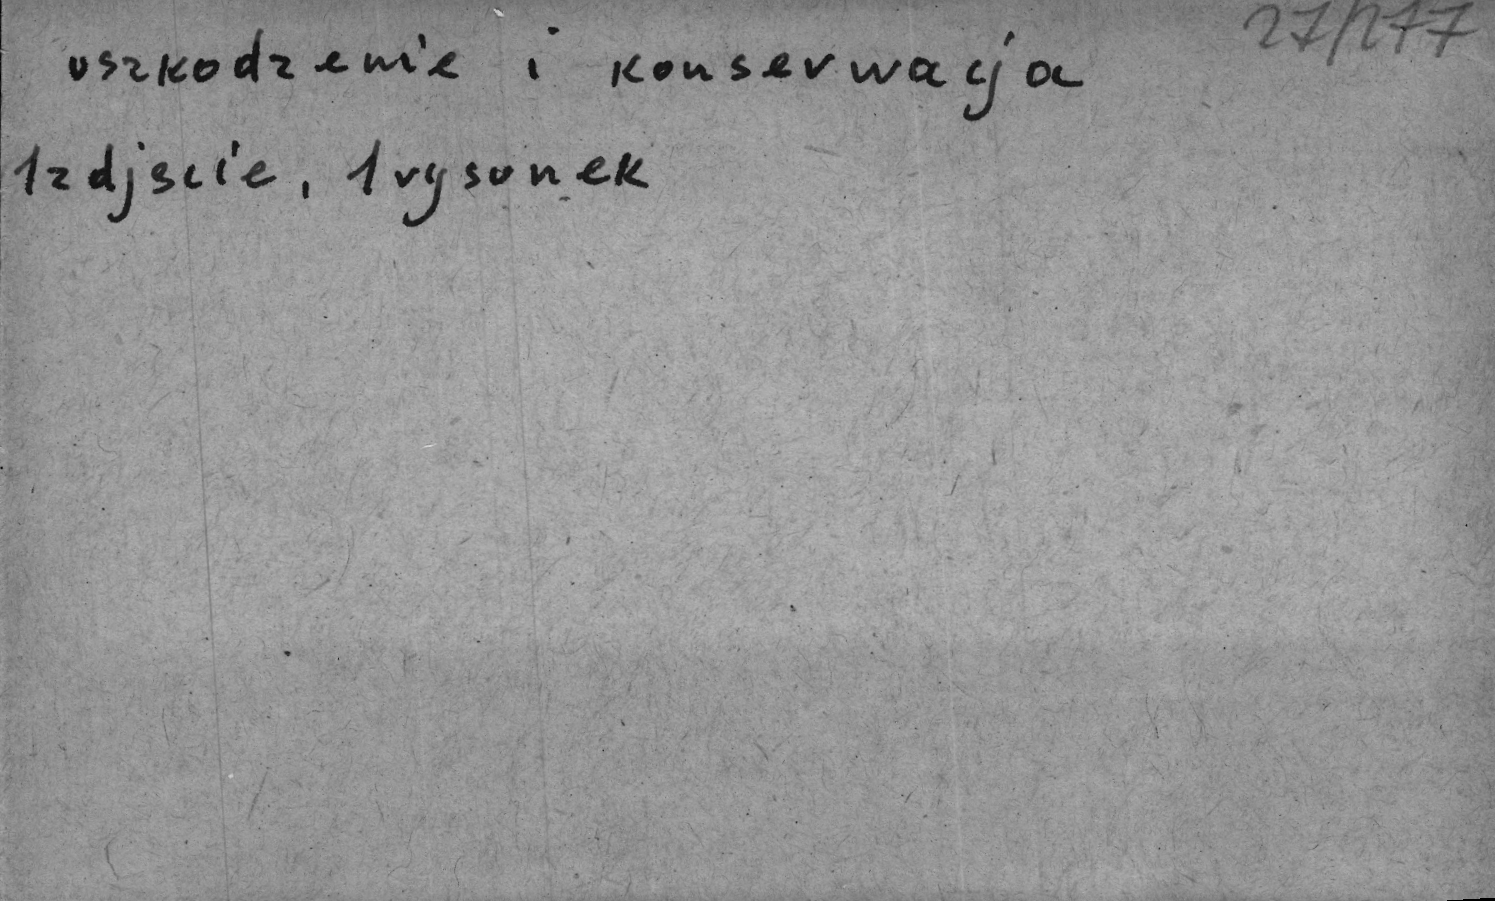 27/277
uszkodzenie i konserwacja
1 zdjscie, 1 rysunek